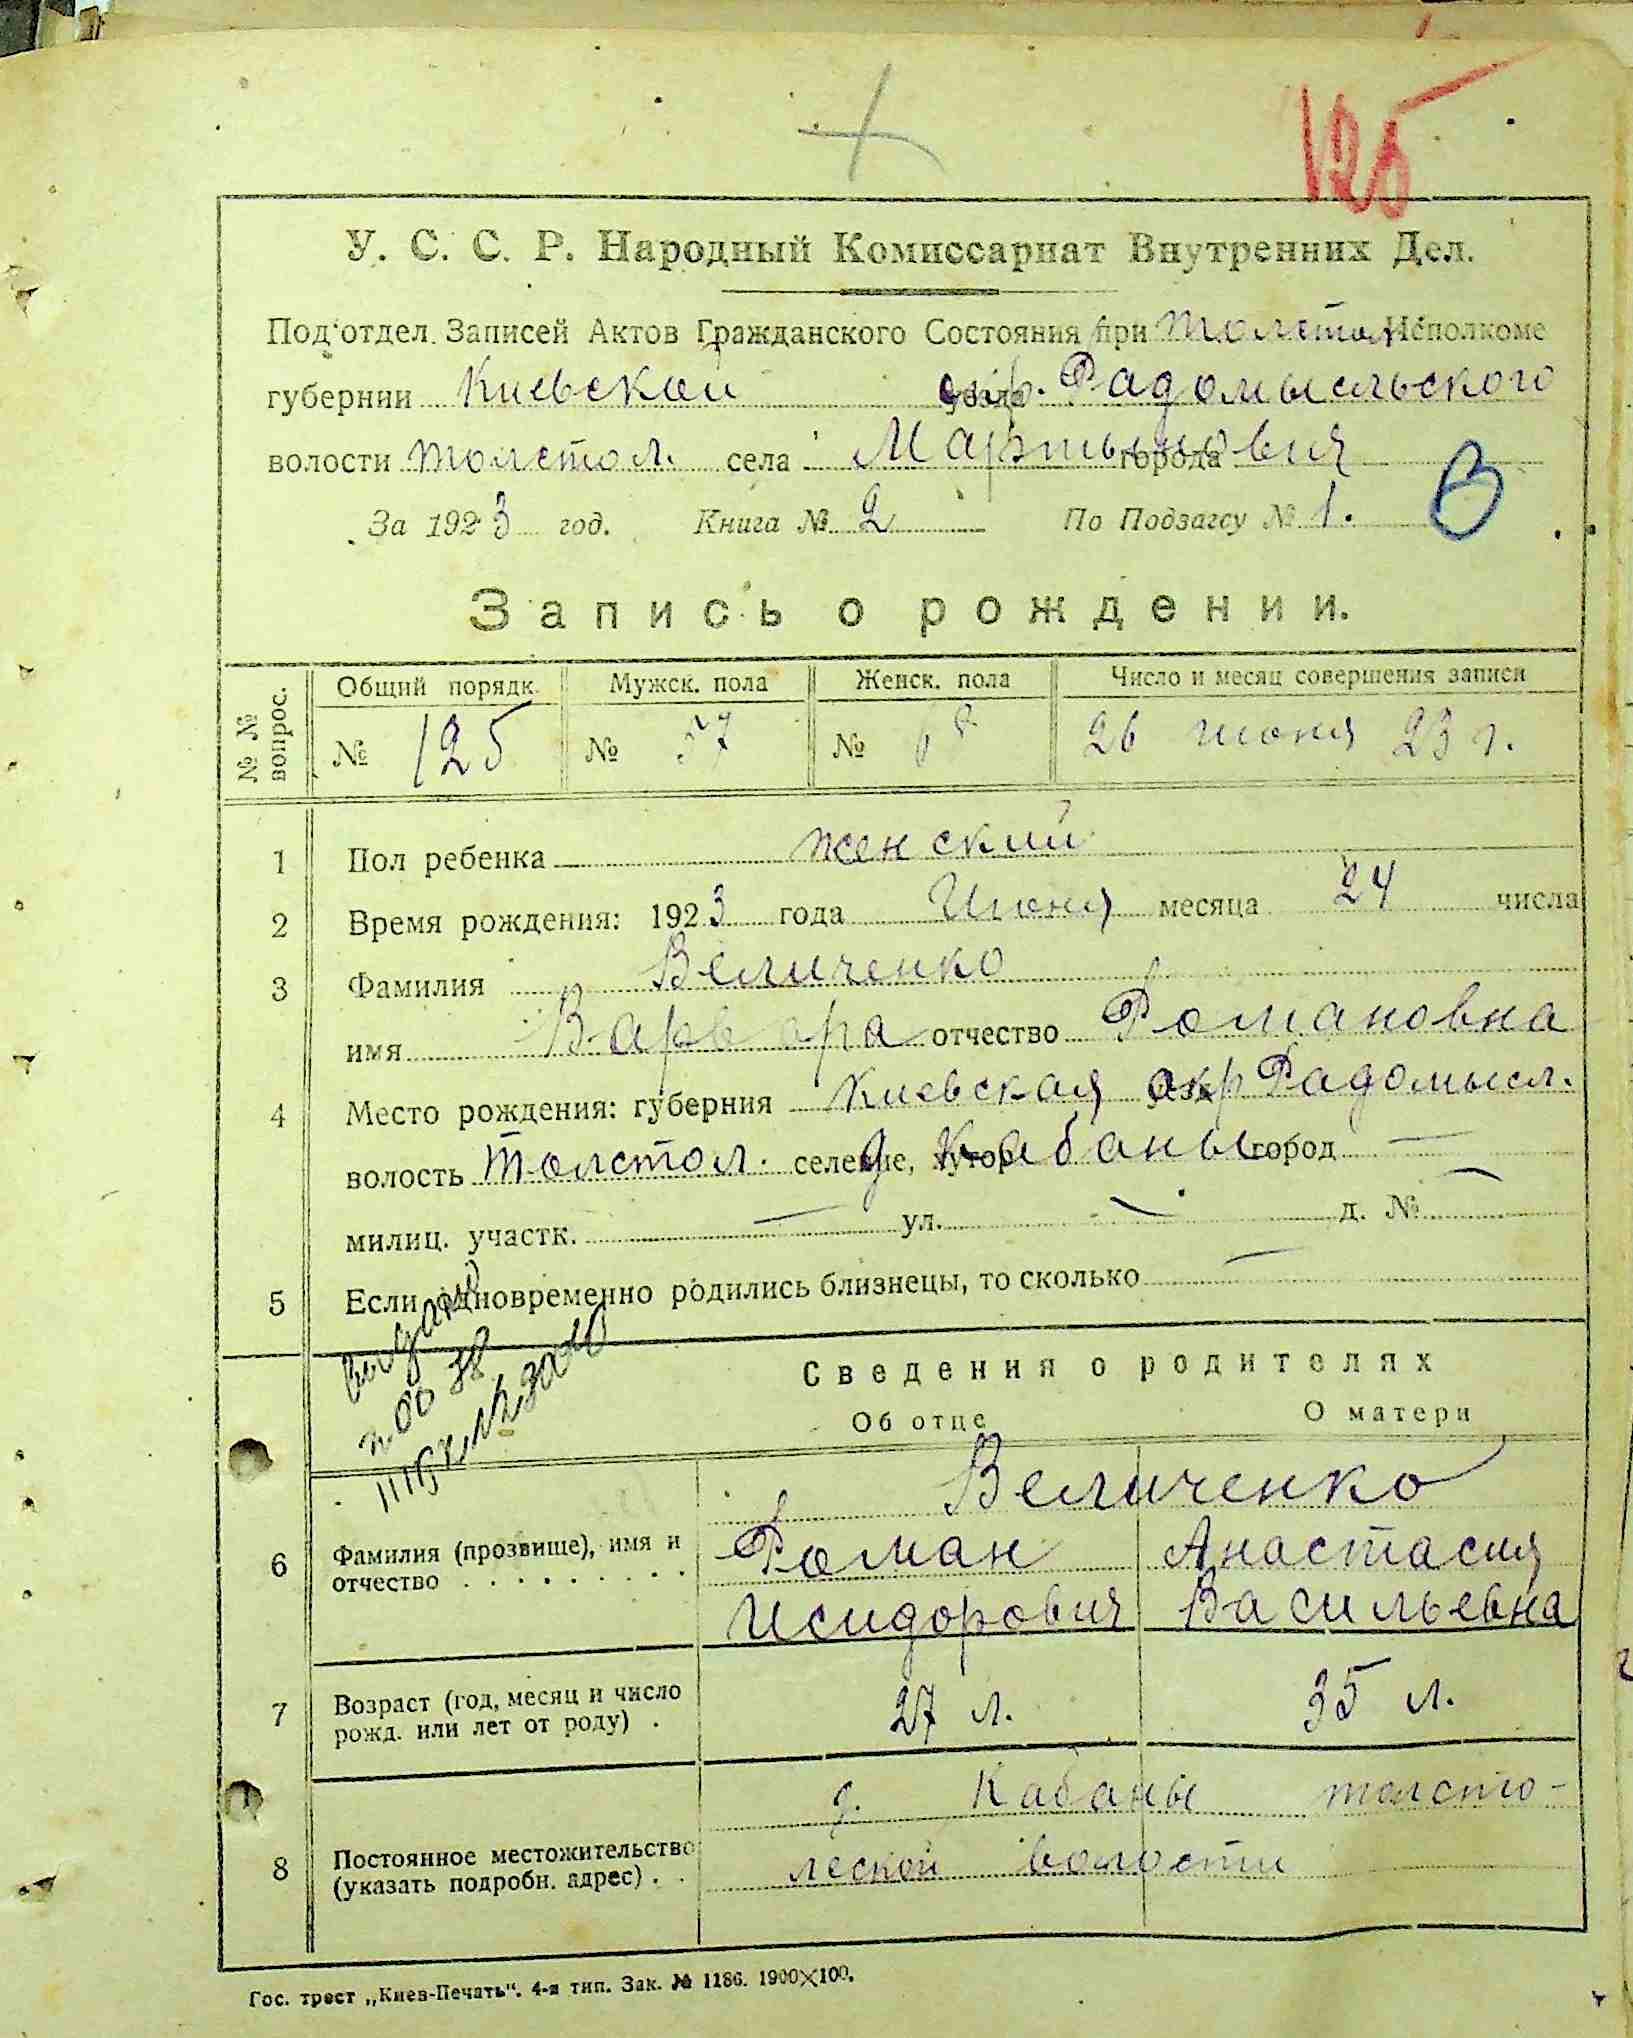 125
У. С. С. Р. Народный Комиссариат Внутренних Дел.
Под'отдел Записей Актов Гражданского Состояния при Толстол Исполкоме
губернии Киевской окр. Радомысльского
волости Толстол. села Мартынович города
За 1923 год. Книга № 2 По Подзагсу № 1. В
Запись о рождении.
№ № вопрос. Общий порядк. Мужск. пола Женск. пола Число и месяц совершения записи
№ 125 № 57 № 68 26 июня 23 г.
1 Пол ребенка женский
2 Время рождения: 1923 года Июня месяца 24 числа
3 Фамилия Величенко
имя Варвара отчество Романовна
4 Место рождения: губерния Киевская окр Радомысл.
волость Толстол. селение, хутор д Кабаны город —
милиц. участк. — ул. — д. № —
5 Если одновременно родились близнецы, то сколько —
Сведения о родителях
Об отце О матери
Величенко
6 Фамилия (прозвище), имя и отчество Роман Анастасия
Исидорович Васильевна
7 Возраст (год, месяц и число рожд. или лет от роду) 27 л. 35 л.
д. Кабаны толсто-
8 Постоянное местожительство (указать подробн. адрес) леской волости
Гос. трест „Киев-Печать“. 4-я тип. Зак. № 1186. 1900×100.